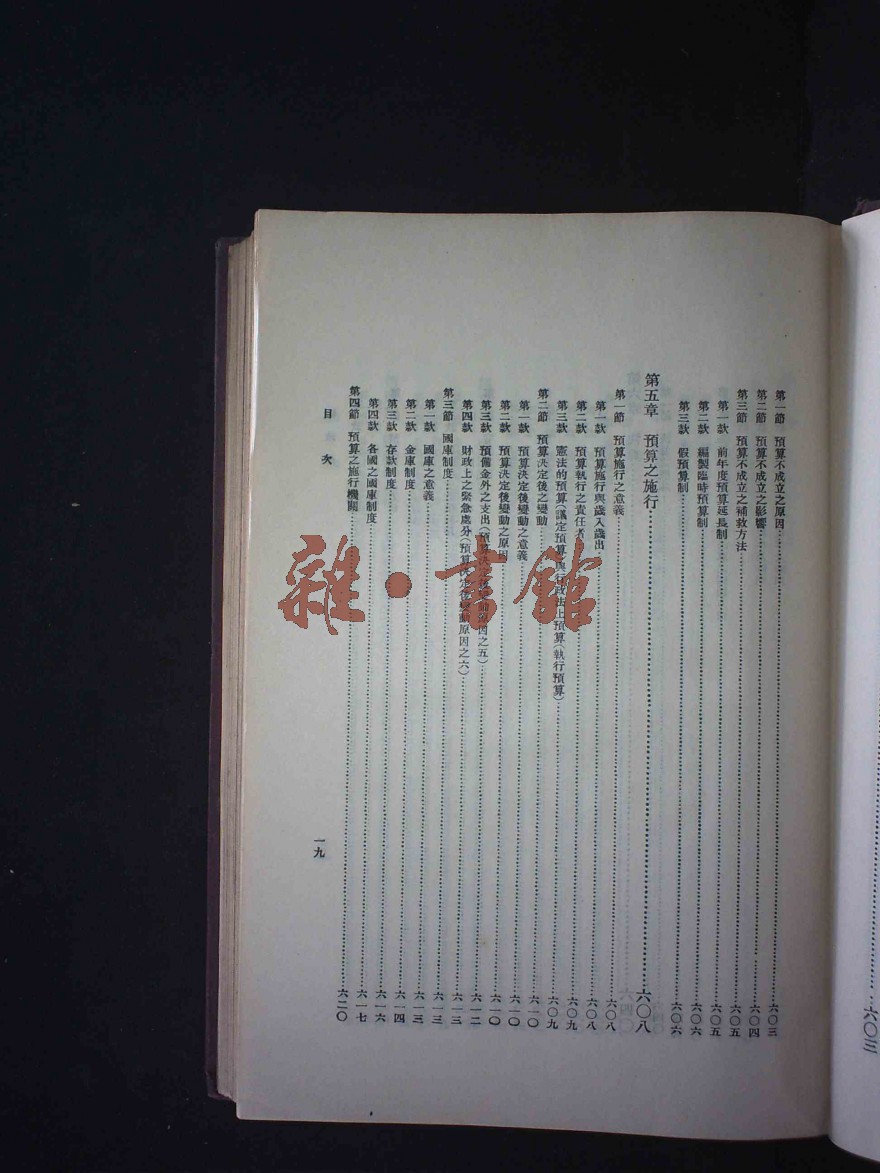 ……六〇三
第一節　預算不成立之原因……六〇三
第二節　預算不成立之影響……六〇四
第三節　預算不成立之補救方法……六〇五
第一款　前年度預算延長制……六〇五
第二款　編製臨時預算制……六〇六
第三款　假預算制……六〇六
第五章　預算之施行……六〇八
第一節　預算施行之意義……六〇八
第一款　預算施行與歲入歲出……六〇八
第二款　預算執行之責任者……六〇九
第三款　憲法的預算(議定預算)與行政法上預算(執行預算)……六〇九
第二節　預算決定後之變動……六一〇
第一款　預算決定後變動之意義……六一〇
第二款　預算決定後變動之原因……六一〇
第三款　預備金外之支出(預算決定後變動原因之五)……六一二
第四款　財政上之緊急處分(預算決定後變動原因之六)……六一三
第三節　國庫制度……六一三
第一款　國庫之意義……六一三
第二款　金庫制度……六一四
第三款　存款制度……六一六
第四款　各國之國庫制度……六一七
第四節　預算之施行機關……六二〇
目次
一九
雜·書館